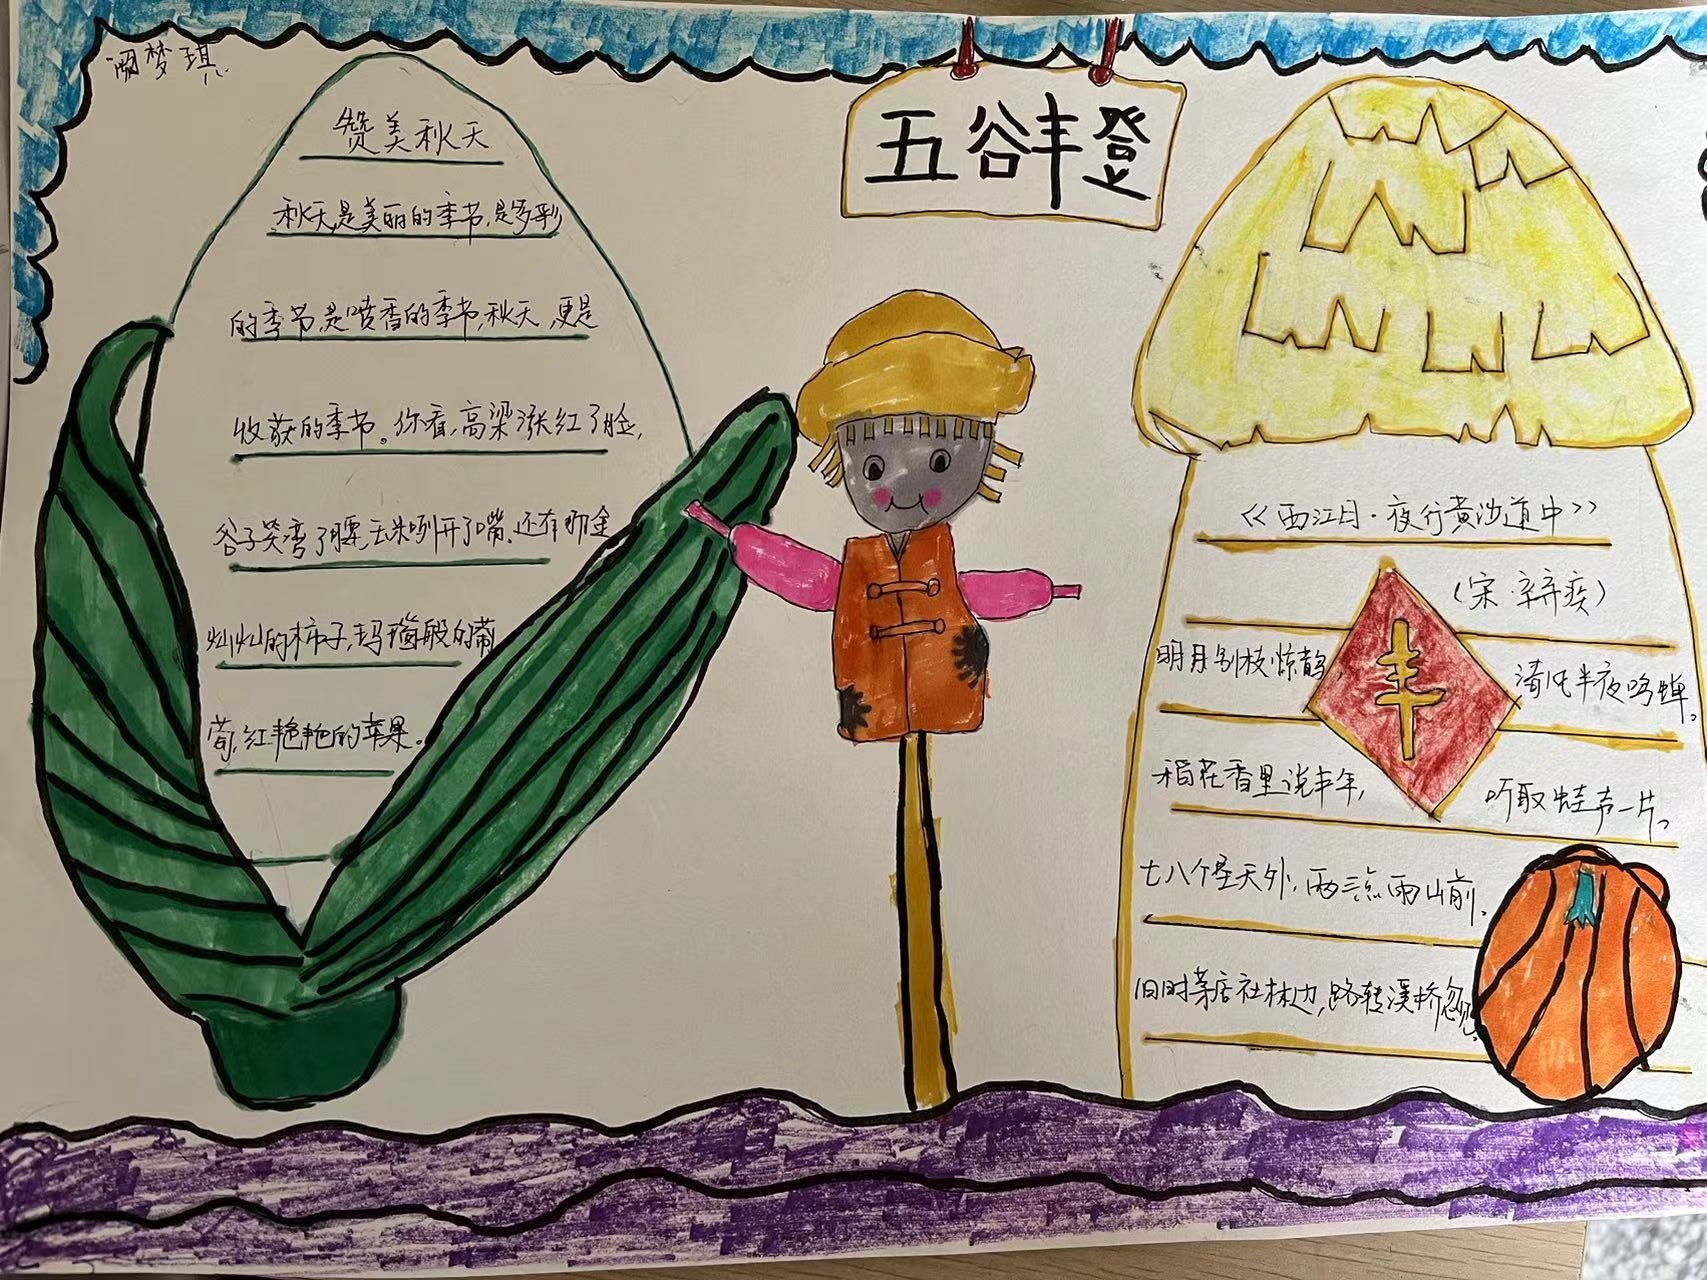 阙梦琪
五谷丰登
赞美秋天
秋天,是美丽的季节,是多彩
的季节,是喷香的季节,秋天,更是
收获的季节。你看,高梁涨红了脸,
谷子笑弯了腰,玉米咧开了嘴,还有那金
灿灿的柿子,玛瑙般的葡
萄,红艳艳的苹果。
《西江月·夜行黄沙道中》
(宋·辛弃疾)
明月别枝惊鹊, 清风半夜鸣蝉。
丰
稻花香里说丰年, 听取蛙声一片。
七八个星天外,两三点雨山前。
旧时茅店社林边,路转溪桥忽见。